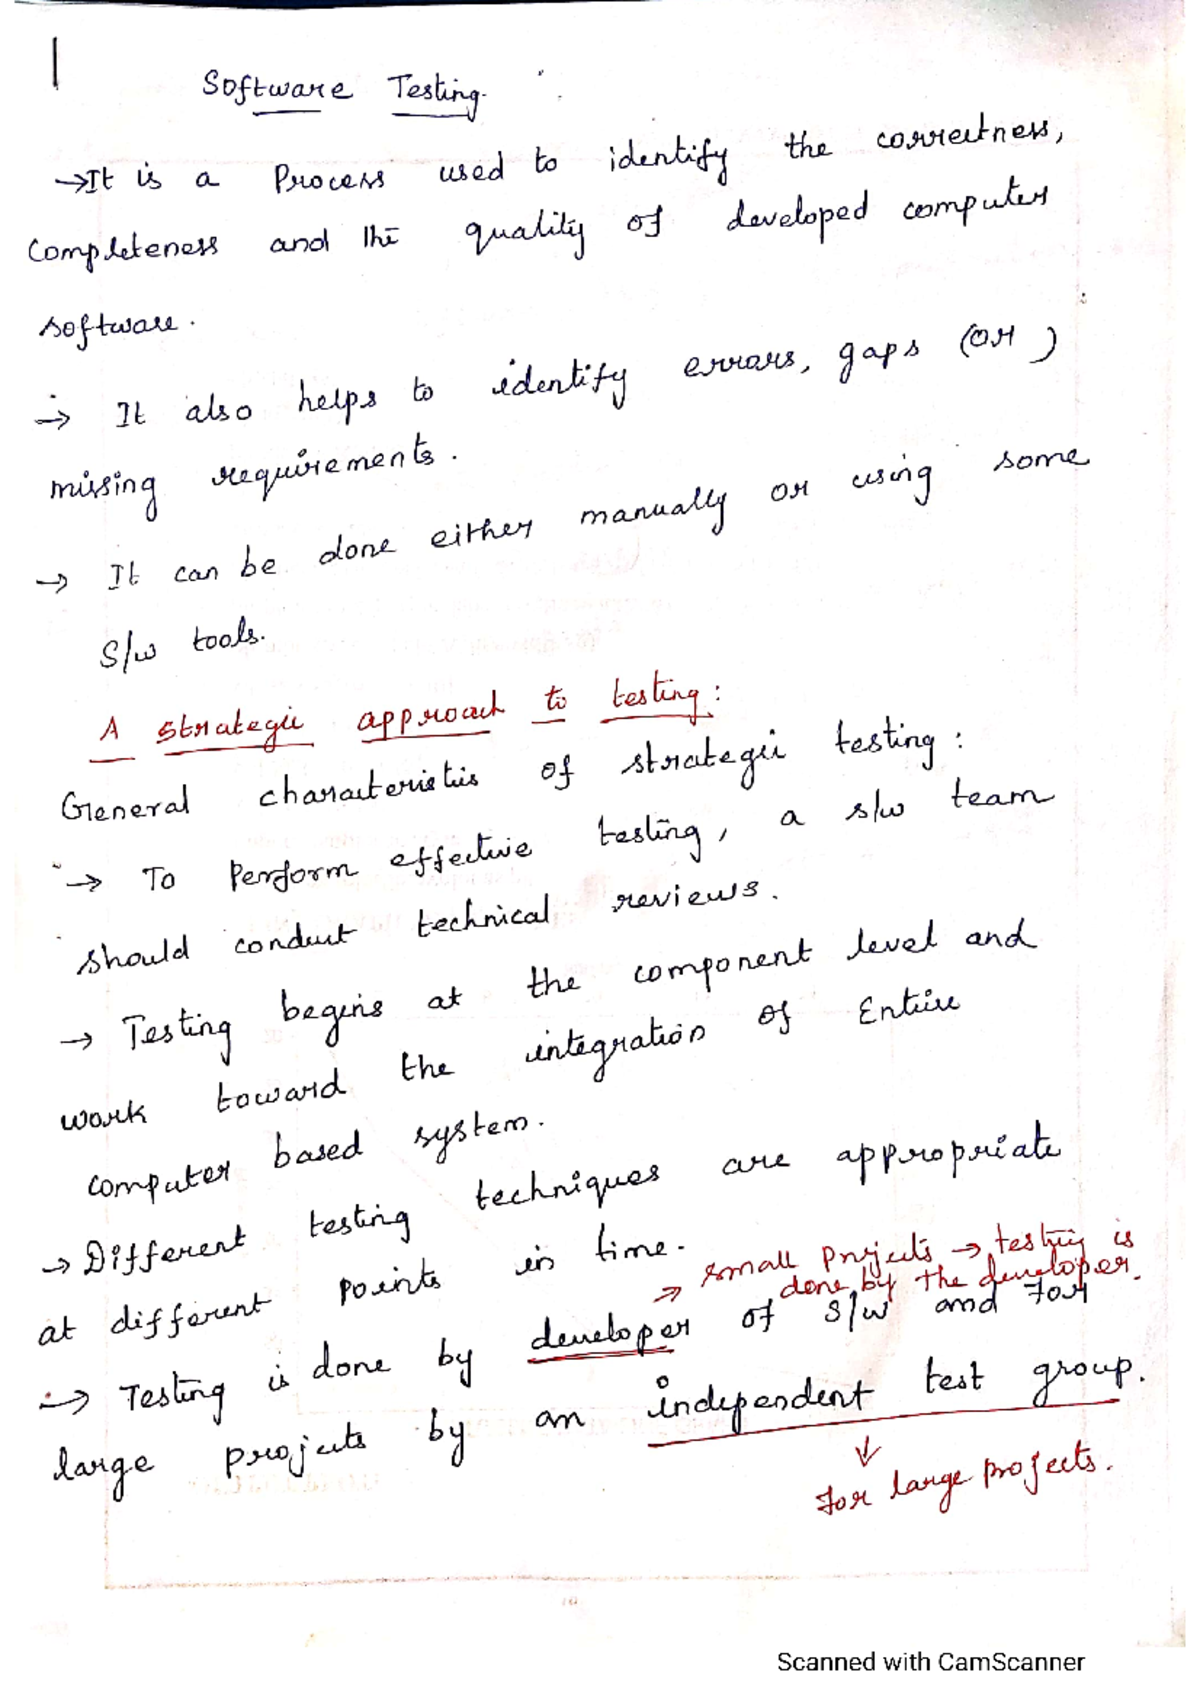 Software Testing.
→It is a Process used to identify the correctness,
Completeness and the quality of developed computer
software.
→ It also helps to identify errors, gaps (or)
missing requirements.
→ It can be done either manually or using some
S/w tools.
A strategic approach to testing:
General characteristics of strategic testing:
→ To Perform effective testing, a s/w team
should conduct technical reviews.
→ Testing begins at the component level and
work toward the integration of Entire
computer based system.
→ Different testing techniques are appropriate
at different points in time.
→ small projects → testing is
done by the developer.
→ Testing is done by developer of S/w and For
large projects by an independent test group.
↓
For large projects.
Scanned with CamScanner